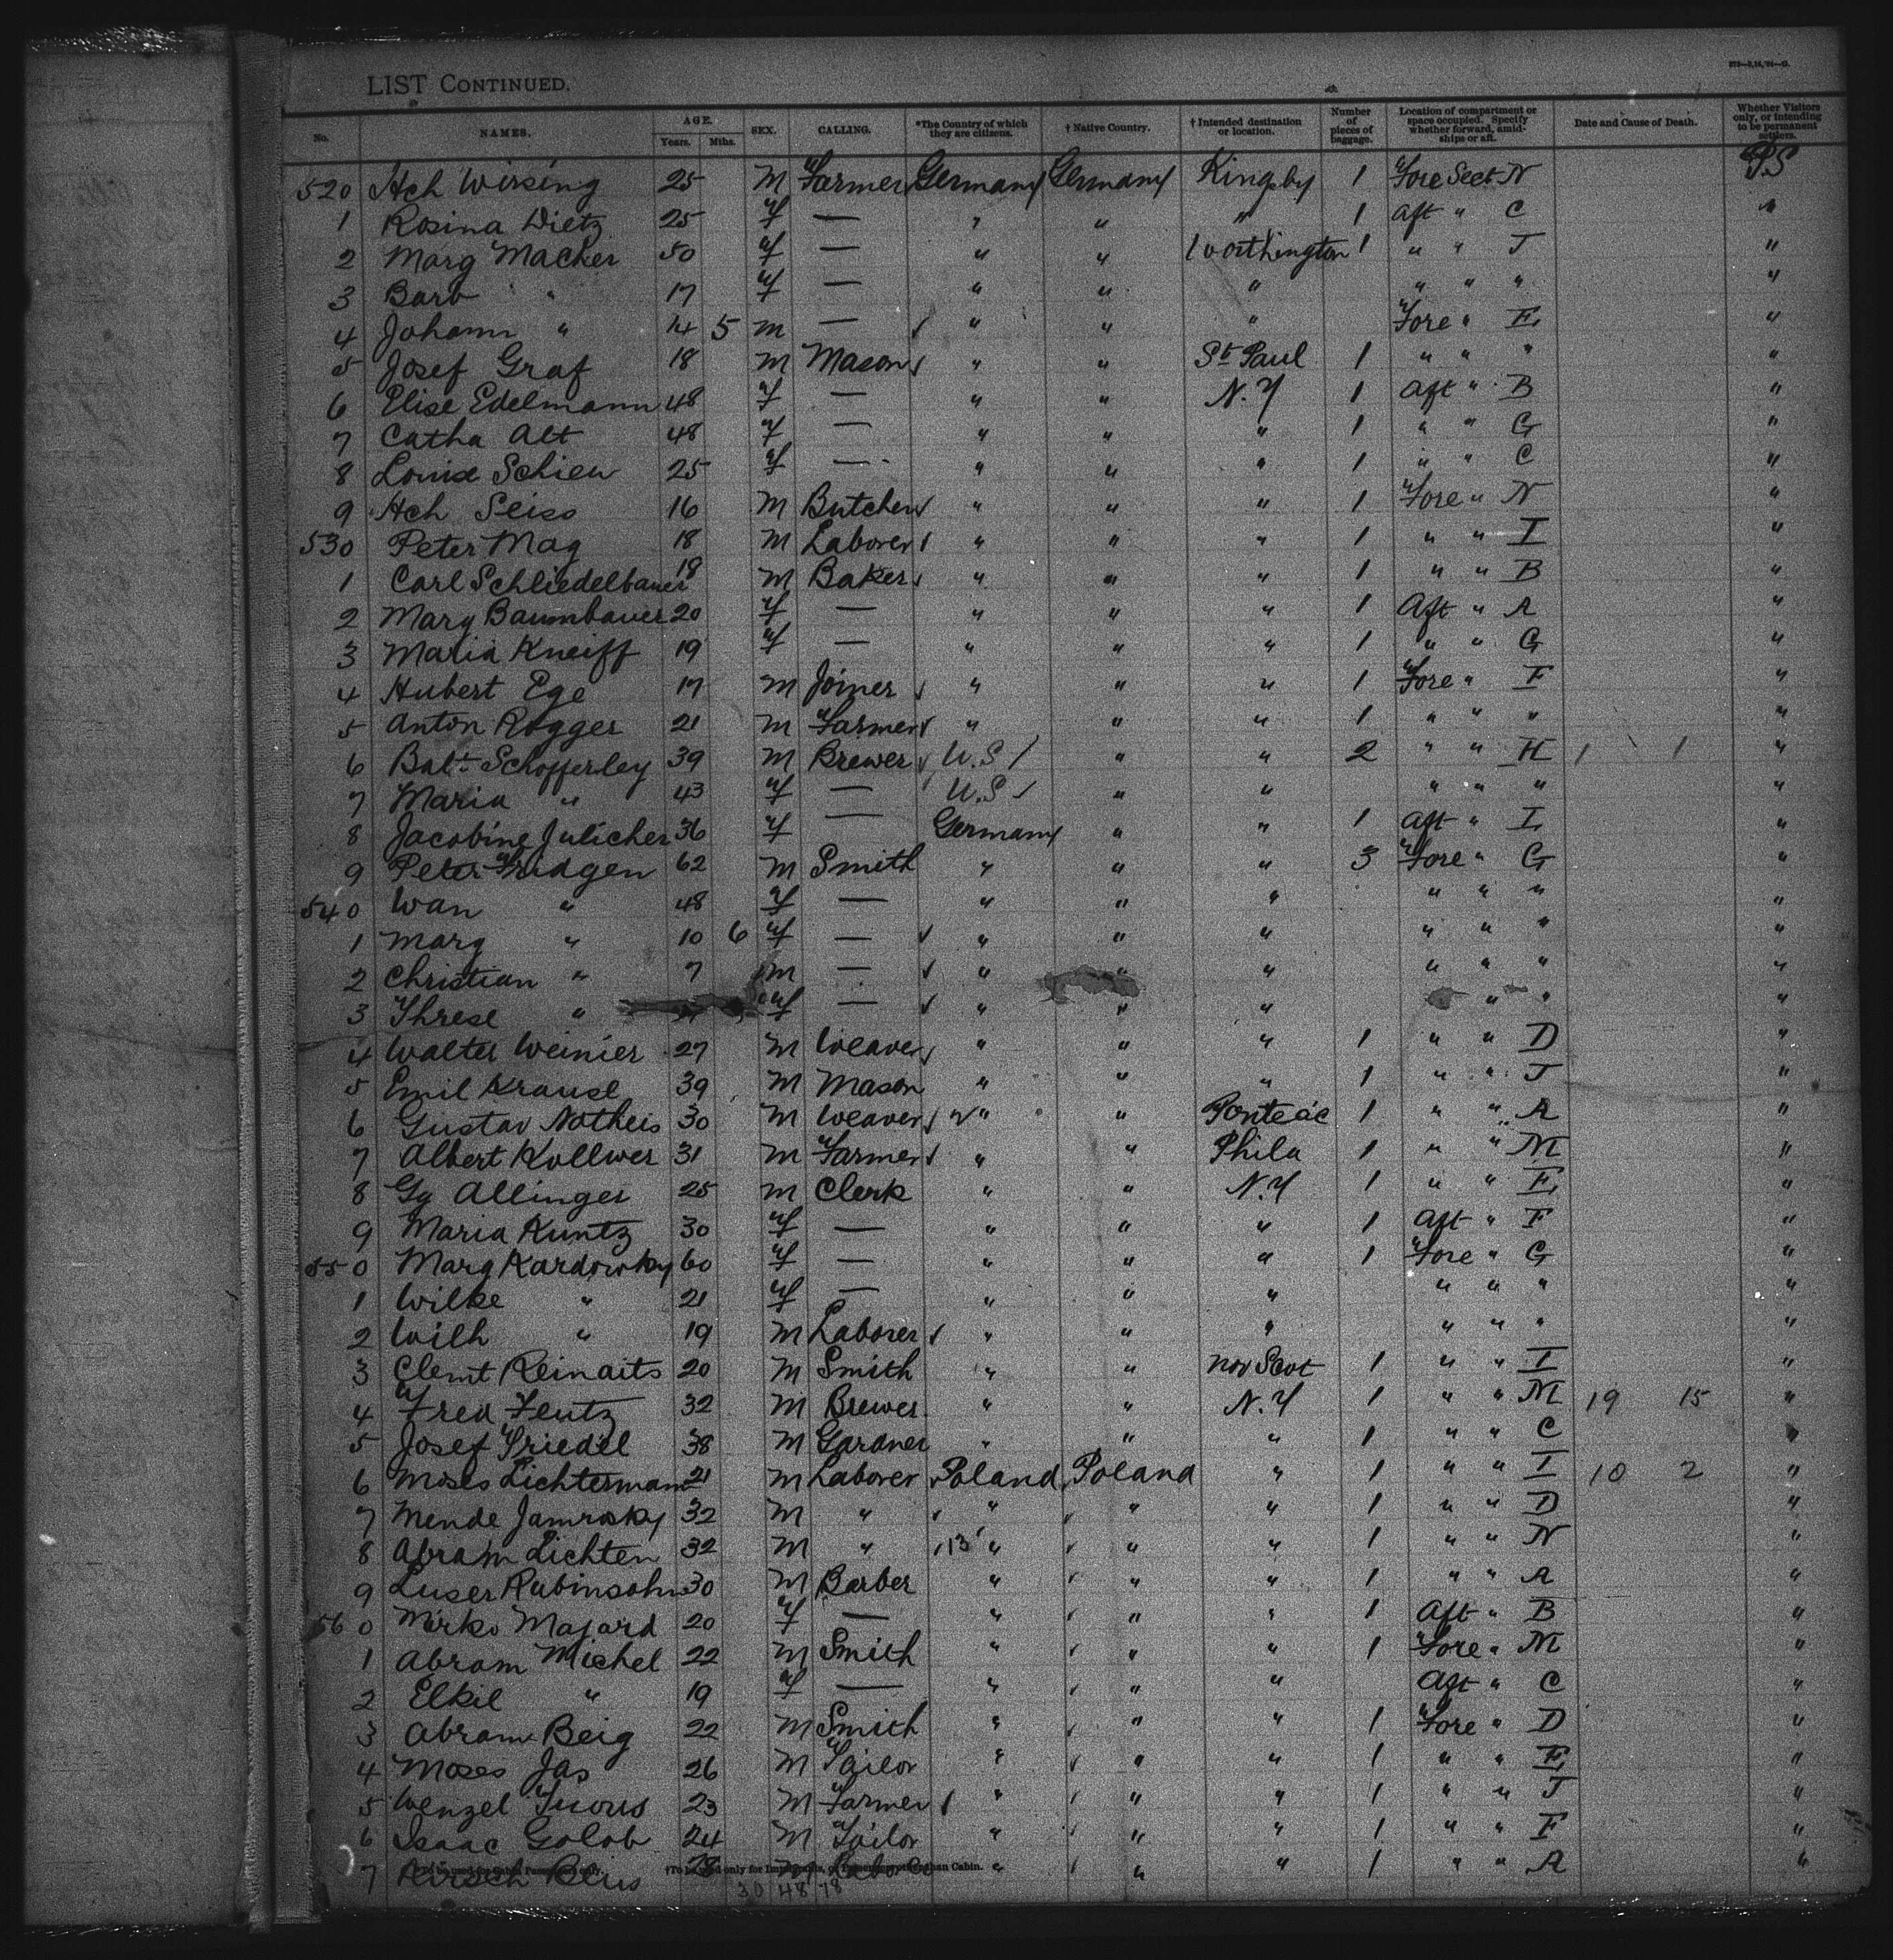 LIST CONTINUED.
No. NAMES. AGE. Years. Mths. SEX. CALLING. *The Country of which they are citizens. † Native Country. † Intended destination or location. Number of pieces of baggage. Location of compartment or space occupied. Specify whether forward, amidships or aft. Date and Cause of Death. Whether Visitors only, or intending to be permanent settlers.
520 Hch Wirsing 25 M Farmer Germany Germany Kingsby 1 Fore Sect N PS
1 Rosina Dietz 25 f — " " " 1 Aft " C "
2 Marg Macher 50 f — " " Worthington 1 " " J "
3 Barb " 17 f — " " " " " " "
4 Johann " 14 5 m — " " " Fore " E "
5 Josef Graf 18 M Mason " " St Paul 1 " " " "
6 Elise Edelmann 48 f — " " N.Y 1 Aft " B "
7 Catha Alt 48 f — " " " 1 " " G "
8 Louise Schiew 25 f — " " " 1 " " C "
9 Hch Seiss 16 M Butcher " " " 1 Fore " N "
530 Peter Mag 18 M Laborer " " " 1 " " I "
1 Carl Schliedelbauer 18 M Baker " " " 1 " " B "
2 Marg Baumbauer 20 f — " " " 1 Aft " A "
3 Maria Kneiff 19 f — " " " 1 " " G "
4 Hubert Ege 17 M Joiner " " " 1 Fore " F "
5 Anton Rogger 21 M Farmer " " " 1 " " " "
6 Balt. Schofferley 39 M Brewer U.S " " 2 " " H 1 1 "
7 Maria " 43 f — U.S " " " " " "
8 Jacobine Julicher 36 f — Germany " " 1 Aft " I "
9 Peter Fridgen 62 M Smith " " " 3 Fore " G "
540 Wan " 48 f — " " " " " " "
1 Marg " 10 6 f — " " " " " " "
2 Christian " 7 m — " " " " " " "
3 Threse " f — " " " " " "
4 Walter Weinier 27 M Weaver " " " 1 " " D "
5 Emil Krause 39 M Mason " " " 1 " " J "
6 Gustav Notheis 30 M Weaver " " Ponteac 1 " " A "
7 Albert Kollwer 31 M Farmer " " Phila 1 " " M "
8 Gg Allinger 25 M Clerk " " N.Y 1 " " E "
9 Maria Kuntz 30 f — " " " 1 Aft " F "
550 Marg Kardowsky 60 f — " " " 1 Fore " G "
1 Wilke " 21 f — " " " " " " "
2 Wilh " 19 M Laborer " " " " " " "
3 Clemt Reinaits 20 M Smith " " Nov Scot 1 " " I "
4 Fred Fentz 32 M Brewer " " N.Y 1 " " M 19 15 "
5 Josef Friedel 38 M Gardner " " " 1 " " C "
6 Moses Lichtermann 21 M Laborer Poland Poland " 1 " " I 10 2 "
7 Mende Jamrosky 32 M " " " " 1 " " D "
8 Abram Lichten 32 M " 13 " " " 1 " " N "
9 Luser Rubinsohn 30 M Barber " " " 1 " " A "
560 Mirko Majard 20 f — " " " 1 Aft " B "
1 Abram Michel 22 M Smith " " " 1 Fore " M "
2 Elkil " 19 f — " " " Aft " C "
3 Abram Beig 22 M Smith " " " 1 Fore " D "
4 Moses Jas 26 M Tailor " " " 1 " " E "
5 Wenzel 23 M Farmer " " " 1 " " J "
6 Isaac Golob 24 M Tailor " " " 1 " " F "
7 Hirsch 28 M Laborer " " " 1 " " A "
*To be used for Cabin Passengers only. †To be used only for Immigrants, or Passengers other than Cabin.
30 48 78